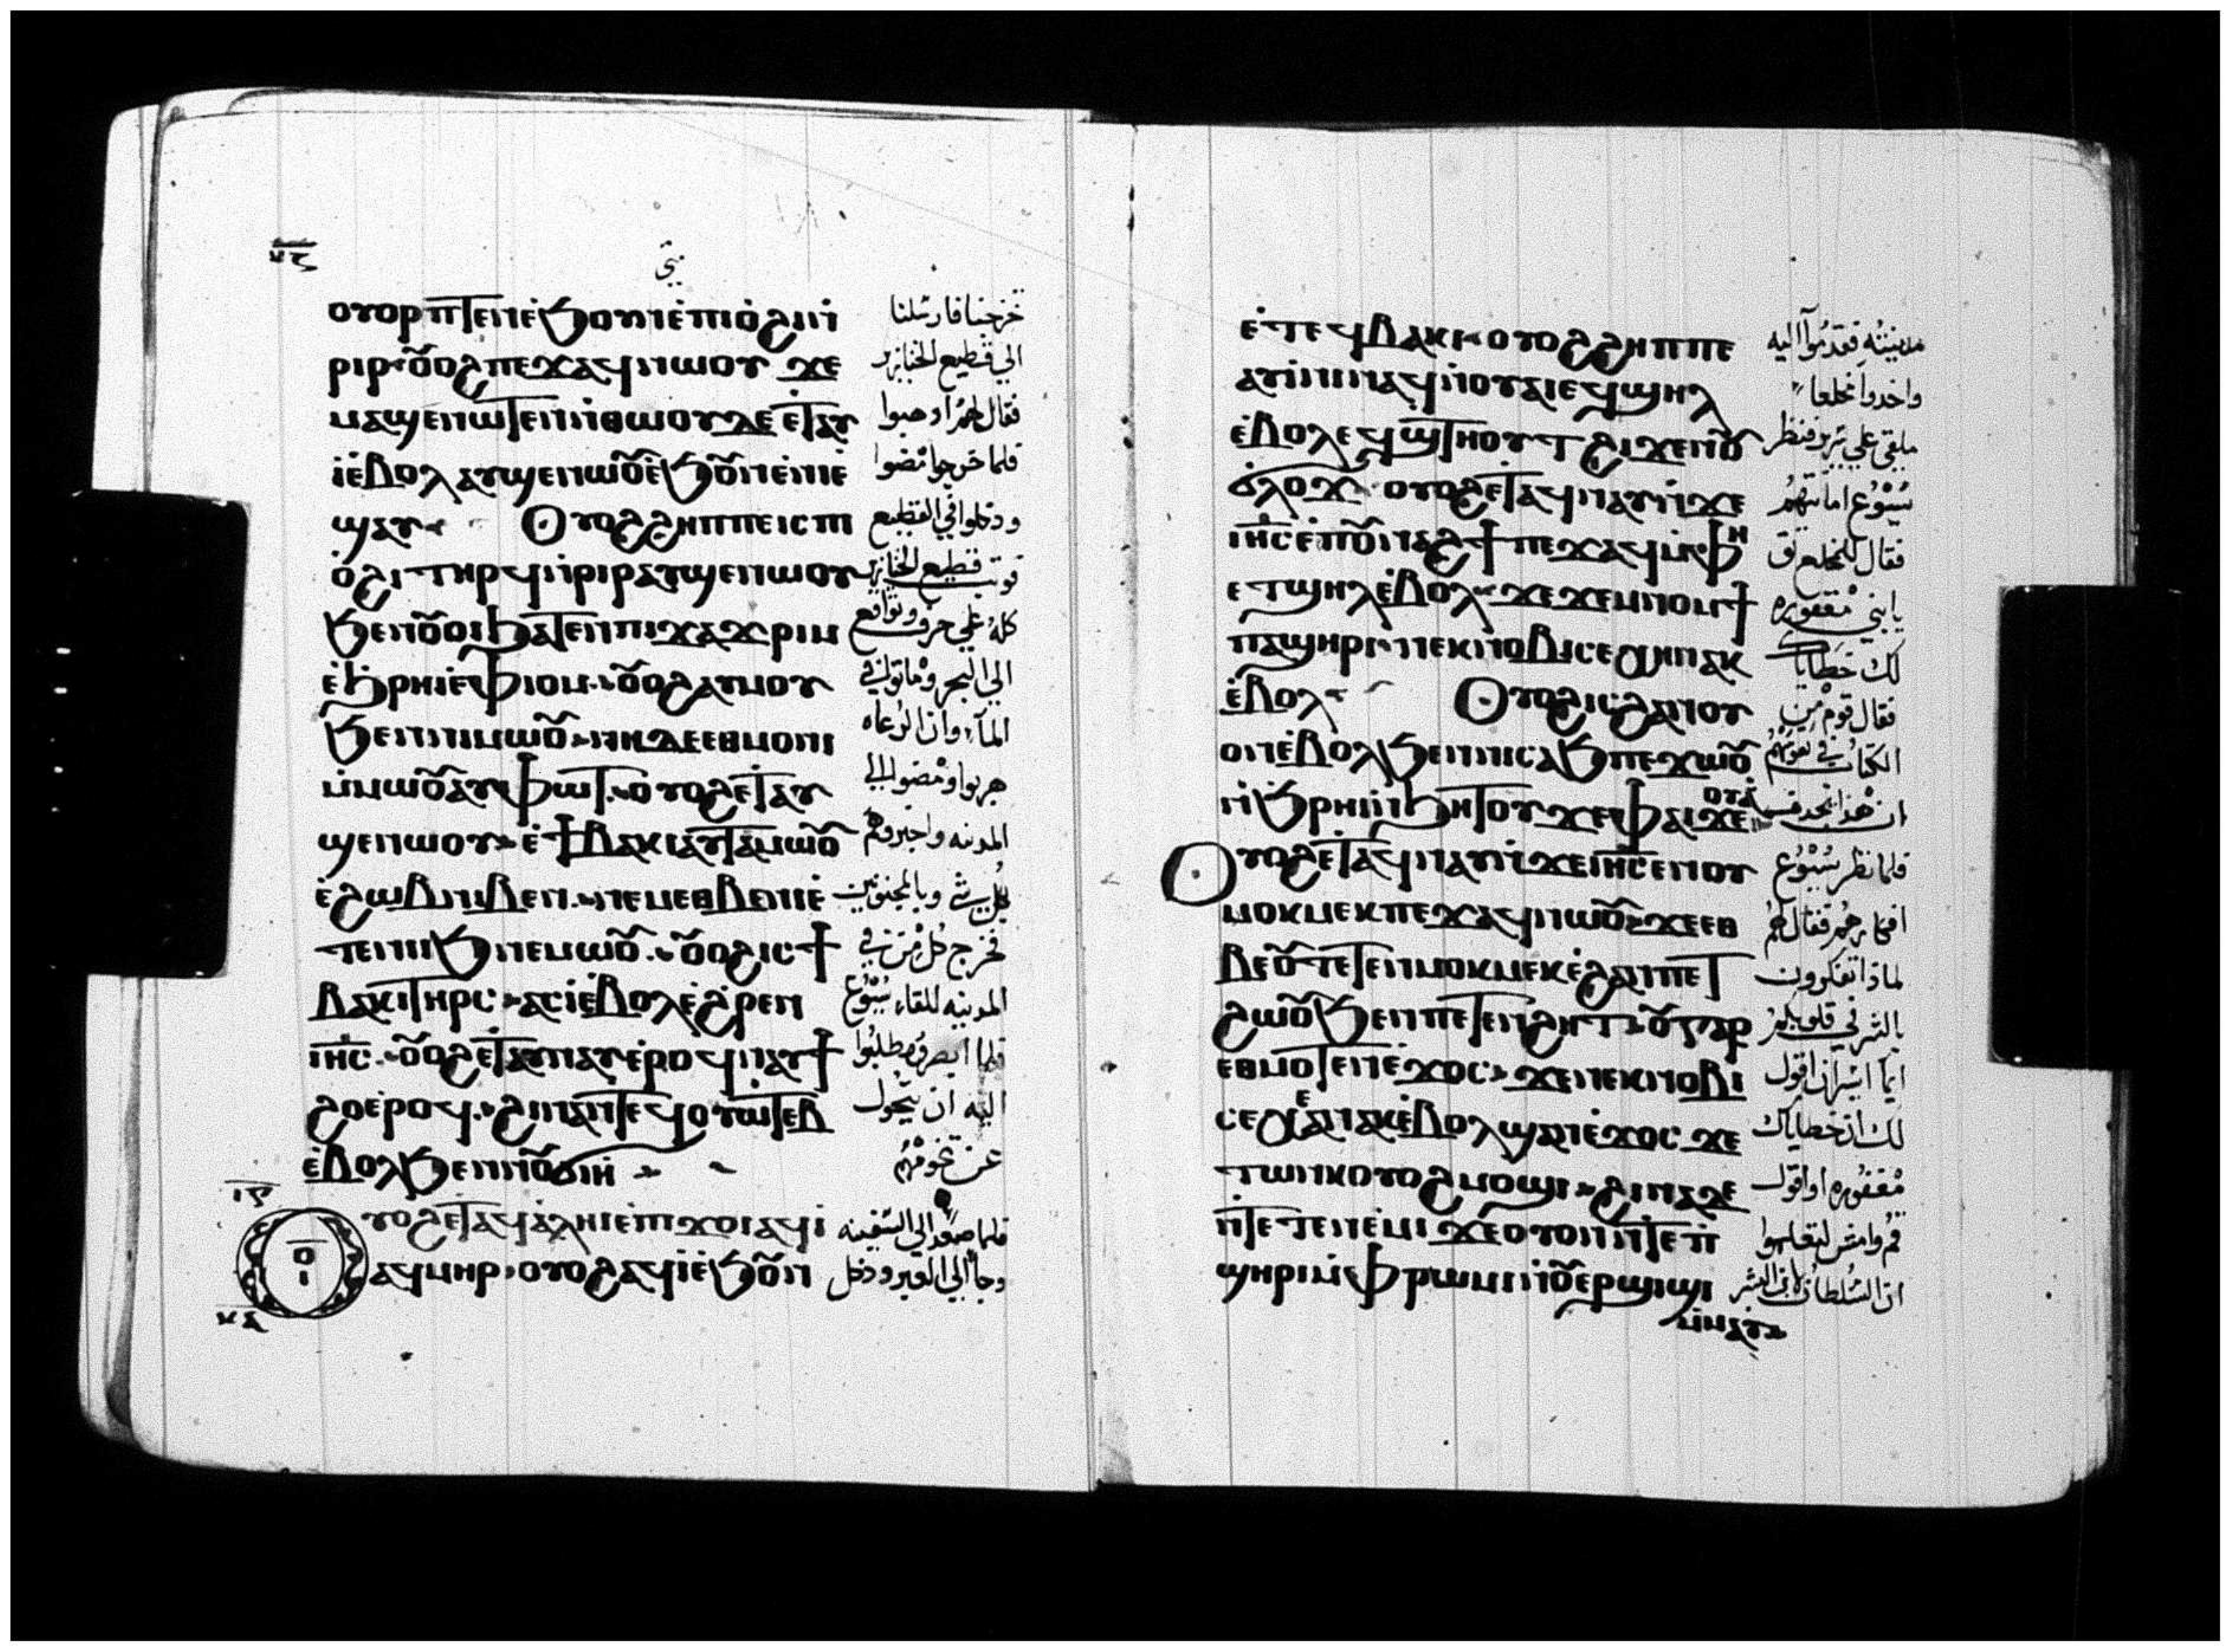 ⲟⲩⲟⲣⲡⲧⲉⲛⲉ̀ϧⲟⲩⲛⲉ̀ⲡⲓⲟ̀ϩⲓⲛ̀
ⲣⲓⲣ ⲟⲩⲟϩ ⲡⲉϫⲁϥⲛⲱⲟⲩ ϫⲉ
ⲙⲁϣⲉⲛⲱⲧⲉⲛ ⲛ̀ⲑⲱⲟⲩⲇⲉ ⲉⲧⲁⲩ
ⲓ̀ⲉ̀ⲃⲟⲗ ⲁⲩϣⲉⲛⲱⲟⲩ ⲉ̀ϧⲟⲩⲛ ⲉ̀ⲛⲓⲉ̀
ϣⲁⲩ Ⲟⲩⲟϩ ϩⲏⲡⲡⲉ ⲓⲥ ⲡⲓ
ⲟ̀ϩⲓ ⲧⲏⲣϥ ⲛ̀ⲣⲓⲣ ⲁⲩϣⲉⲛⲱⲟⲩ
ϧⲉⲛ ⲟⲩⲟⲓ ϧⲁⲧⲉⲛ ⲡⲓϫⲁϫⲣⲓⲙ
ⲉ̀ϧⲣⲏⲓ ⲉ̀ⲫⲓⲟⲙ ⲟⲩⲟϩ ⲁⲩⲙⲟⲩ
ϧⲉⲛ ⲛⲓⲙⲱⲟⲩ ⲛⲏ ⲇⲉ ⲉⲑⲙⲟⲛⲓ
ⲙ̀ⲙⲱⲟⲩ ⲁⲩⲫⲱⲧ ⲟⲩⲟϩ ⲉⲧⲁⲩ
ϣⲉⲛⲱⲟⲩ ⲉ̀ϯⲃⲁⲕⲓ ⲁⲩⲧⲁⲙⲱⲟⲩ
ⲉ̀ϩⲱⲃ ⲛⲓⲃⲉⲛ ⲛⲉⲙ ⲉⲑⲃⲉ ⲛⲓⲉ̀
ⲧⲉ ⲛⲓⲓϧ ⲛⲉⲙⲱⲟⲩ ⲟⲩⲟϩ ⲓⲥ ϯ
ⲃⲁⲕⲓ ⲧⲏⲣⲥ ⲁⲥⲓ̀ ⲉ̀ⲃⲟⲗ ⲉ̀ϩ̀ⲣⲉⲛ
ⲓⲏⲥ ⲟⲩⲟϩ ⲉⲧⲁⲩⲛⲁⲩ ⲉ̀ⲣⲟϥ ⲛⲁⲩϯ
ϩⲟ ⲉ̀ⲣⲟϥ ϩⲓⲛⲁ ⲛⲧⲉϥⲟⲩⲱⲧⲉⲃ
ⲉ̀ⲃⲟⲗ ϧⲉⲛ ⲛⲟⲩϭⲓⲏ
Ⲟⲩⲟϩ ⲉⲧⲁϥⲁ̀ⲗⲏⲓ ⲉ̀ⲡϫⲟⲓ ⲁϥⲓ̀
ⲁϥⲙⲏⲣ ⲟⲩⲟϩ ⲁϥⲓ̀ ⲉ̀ϧⲟⲩⲛ
خرجنا فارسلنا
الي قطيع الخنازير
فقال لهم اذهبوا
فلما خرجوا مضوا
ودخلوا في القطيع
قطيع الخنازير
كله علي جرف وتواقع
الي البحر وماتوا في
المآء وان الرعاه
هربوا ومضوا الي
المدينه واخبروهم
بكل شي وبالمجنونين
فخرج كل من في
المدينه للقاء يسوع
فلما ابصروه طلبوا
اليه ان يتحول
عن تخومهم
فلما صعد الي السفينه
وجا الي العبر ودخل
ⲉ̀ⲧⲉϥⲃⲁⲕⲓ ⲟⲩⲟϩ ϩⲏⲡⲡⲉ
ⲁⲩⲓ̀ⲛⲓ ⲛⲁϥ ⲛ̀ⲟⲩⲁⲓ ⲉϥϣⲏⲗ
ⲉ̀ⲃⲟⲗ ⲉϥϣⲧⲏⲟⲩⲧ ϩⲓϫⲉⲛ ⲟⲩ
ϭⲗⲟϫ ⲟⲩⲟϩ ⲉⲧⲁϥⲛⲁⲩ ⲛ̀ϫⲉ
ⲓⲏⲥ ⲉ̀ⲡⲟⲩⲛⲁϩϯ ⲡⲉϫⲁϥ ⲙ̀ⲫⲏ
ⲉⲧϣⲏⲗ ⲉ̀ⲃⲟⲗ ϫⲉ ϫⲉⲙⲛⲟⲙϯ
ⲡⲁϣⲏⲣⲓ ⲛⲉⲕⲛⲟⲃⲓ ⲥⲉⲭⲏ ⲛⲁⲕ
ⲉ̀ⲃⲟⲗ Ⲟⲩⲟϩ ⲓⲥ ϩⲁⲛⲟⲩ
ⲟⲛ ⲉ̀ⲃⲟⲗ ϧⲉⲛ ⲛⲓⲥⲁϧ ⲡⲉϫⲱⲟⲩ
ⲛ̀ϧⲣⲏⲓ ⲛ̀ϧⲏⲧⲟⲩ ϫⲉ ⲫⲁⲓ ϫⲉⲟⲩⲁ̀
Ⲟⲩⲟϩ ⲉⲧⲁϥⲛⲁⲩ ⲛ̀ϫⲉ ⲓⲏⲥ ⲉⲛⲟⲩ
ⲙⲟⲕⲙⲉⲕ ⲡⲉϫⲁϥ ⲛⲱⲟⲩ ϫⲉ ⲉⲑ
ⲃⲉⲟⲩ ⲧⲉⲧⲉⲛⲙⲟⲕⲙⲉⲕ ⲉ̀ϩⲁⲛⲡⲉⲧ
ϩⲱⲟⲩ ϧⲉⲛ ⲛⲉⲧⲉⲛϩⲏⲧ ⲟⲩ ⲅⲁⲣ
ⲉⲑⲙⲟⲧⲉⲛ ⲉ̀ϫⲟⲥ ϫⲉ ⲛⲉⲕⲛⲟⲃⲓ
ⲥⲉⲭⲉ ⲛⲁⲕ ⲉ̀ⲃⲟⲗ ϣⲁⲛ ⲉ̀ϫⲟⲥ ϫⲉ
ⲧⲱⲛⲕ ⲟⲩⲟϩ ⲙⲟϣⲓ ϩⲓⲛⲁ ⲇⲉ
ⲛ̀ⲧⲉⲧⲉⲛⲉ̀ⲙⲓ ϫⲉ ⲟⲩⲟⲛⲧⲉ ⲡ
ϣⲏⲣⲓ ⲙ̀ⲫⲣⲱⲙⲓ ⲛ̀ⲟⲩⲉⲣϣⲓϣⲓ
ⲙ̀ⲙⲁⲩ
مدينته فقدموا اليه
واحدا مخلعا
ملقي علي سرير فنظر
يسوع امانتهم
فقال للمخلع ثق
يا بني مغفوره
لك خطاياك
فقال قوم من
الكتاب في نفوسهم
ان هذا يجدف
فلما نظر يسوع
افكارهم فقال لهم
لماذا تفكرون
بالشر في قلوبكم
ايما ايسر ان اقول
لك ان خطاياك
مغفوره او اقول
قم وامش لتعلموا
ان السلطان لابن البشر